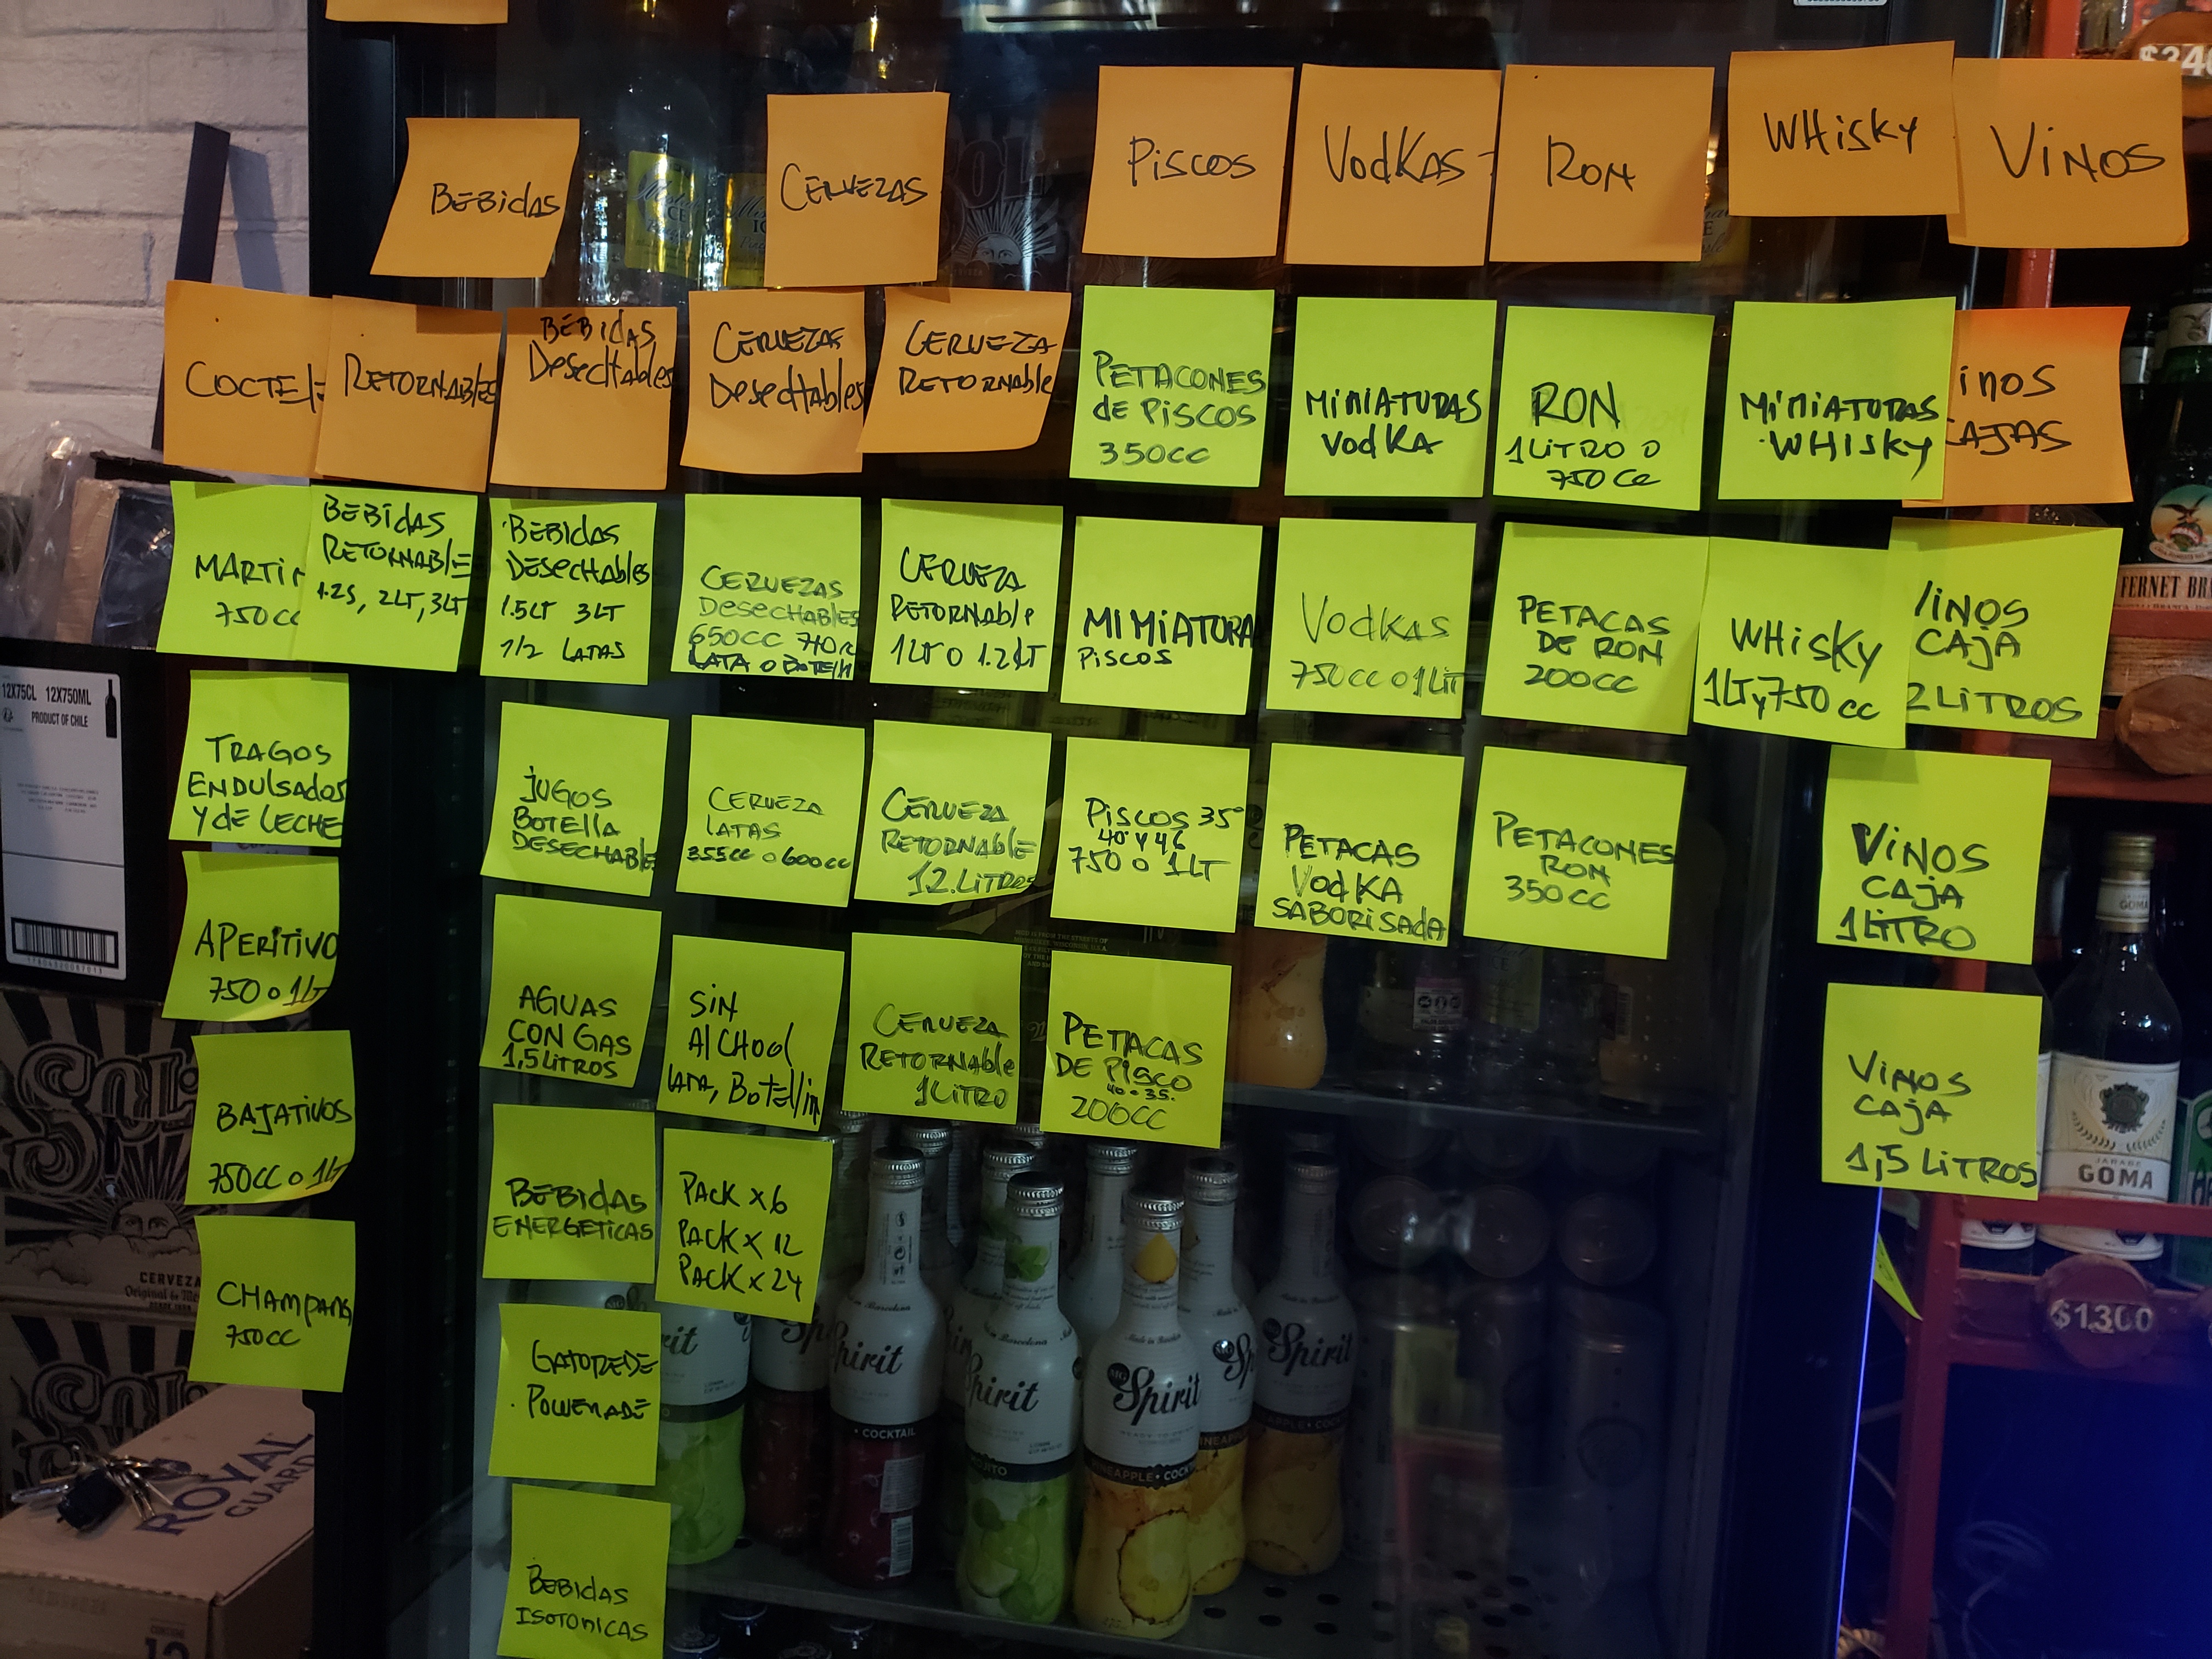 BEBidAS
CERVEZAS
Piscos
VodKAS
RON
WHisky
ViNOS
$340
COCTEL
RETORNAblES
BEBidAS
DesectAbles
CERVEZAS
DesecHAbles
CERVEZA
RETORNAble
PETACONES
de PiSCOS
350CC
MiNiATURAS
VodKA
RON
1LiTRO O
750 CC
MiNiATURAS
WHISKy
inos
CAJAS
MARTiN
750CC
BEBidAS
RETORNABLE
1.25, 2LT, 3LT
BEBidAS
DESECHAbles
1.5LT 3LT
1/2 LATAS
CERVEZAS
DESECHABLES
650CC 710CC
LATA O BOTELLA
CERVEZA
RETORNAble
1LT O 1.2LT
MiMiATURA
PiSCOS
VodKAS
750CC O 1LiT
PETACAS
DE RON
200CC
WHiSKy
1LTy750 CC
ViNOS
CAJA
2 LiTROS
FERNET BR
12X75CL 12X750ML
PRODUCT OF CHILE
TRAGOS
ENDULSAdos
Y dE LECHE
JUGOS
BOTELLA
DESECHABLE
CERVEZA
LATAS
355CC O 600CC
CERVEZA
RETORNABLE
1.2.LiTROS
PiSCOS 35°
40° Y 46
750 O 1LT
PETACAS
VodKA
SABORiSAdA
PETACONES
RON
350CC
ViNOS
CAJA
1LiTRO
APERiTiVO
750 O 1LT
AGUAS
CON GAS
1,5LiTROS
SiN
AlCHool
LATA, BoTellin
CERVEZA
RETORNAble
1LiTRO
PETACAS
DE PiSCO
40 • 35.
200CC
ViNOS
CAJA
1,5 LiTROS
BAJATiVOS
750CC O 1LT
BEBidAS
ENERGETiCAS
PACK x 6
PACK x 12
PACK x 24
CHAMPANA
750CC
GATOREDE
POWERADE
BEBidAS
ISOTONICAS
GOMA
JARABE
GOMA
$1.300
SOL
CERVEZA
ROYAL
GUARD
12
Spirit
Spirit
Spirit
Spirit
COCKTAIL
MOJITO
PINEAPPLE • COCK